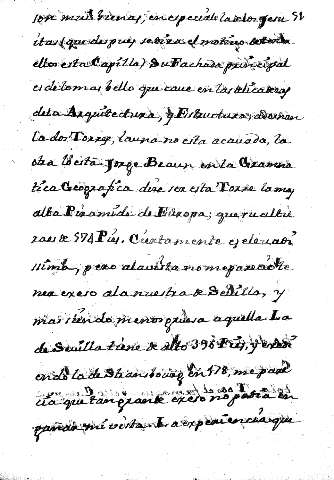 son mui buenas, en especial la de los Jesu 51
itas (que despues se dira el motivo
ello esta Capilla) Su Fachada principal
es de lo mas bello que cave en las delicadezas
de la Arquitectura, y Estructura; adornan
la dos Torres, la una no esta acavada, la
otra lo està Jorge Braun en la Gramma
tica Geografica dice ser esta Torre la mas
alta Piramide de Europa; que su altu
ra es de 574 Pies. Ciertamente es elevati
ssima, pero a la vista no me parecio te
ner exceso a la nuestra de Sevilla, y
mas siendo menos gruesa aquella La
de Sevilla tiene de alto 398 Pies, y
endo la de Strasbourg en 578, me pare
cia que tan grande exceso no podia en
gañar mi vista. La experiencia que